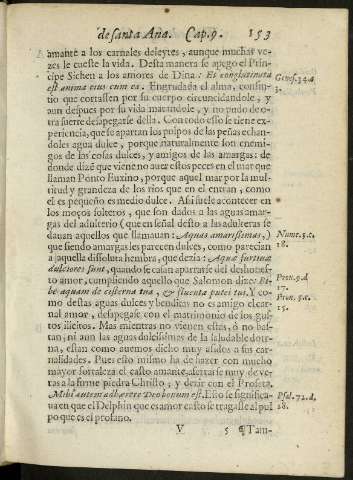 de santa Ana. Cap. 9. 153
amante a los carnales deleytes, aunque muchas ve-
zes le cueste la vida. Desta manera se apego el Prin-
cipe Sichen a los amores de Dina: Et conglutinata
est anima eius cum ea. Engrudada el alma, consin-
tio que cortassen por su cuerpo circuncidandole, y
aun despues por su vida matandole, y no pudo de o-
tra suerte desapegarse della. Con todo esso se tiene ex-
periencia, que se apartan los pulpos de las peñas echan-
doles agua dulce, porque naturalmente son enemi-
gos de las cosas dulces, y amigos de las amargas: de
donde dizē que viene no auer estos peces en el mar que
llaman Ponto Euxino, porque aquel mar por la mul-
titud y grandeza de los rios que en el entran, como
el es pequeño es medio dulce. Assi suele acontecer en
los moços solteros, que son dados a las aguas amar-
gas del adulterio (que en señal desto a las adulteras se
dauan aquellos que llamauan: Aquas amarissimas,)
que siendo amargas les parecen dulces, como parecian
a aquella dissoluta hembra, que dezia: Aquæ furtiuæ
dulciores sunt, quando se casan apartarse del deshones-
to amor, cumpliendo aquello que Salomon dize: Bi-
be aquam de cisterna tua, & fluenta putei tui,) co
mo destas aguas dulces y benditas no es amigo el car-
nal amor, desapegase con el matrimonio de los gus-
tos ilicitos. Mas mientras no vienen estas, ò no bas-
tan, ni aun las aguas dulcissimas de la saludable dotri-
na, estan como auemos dicho muy assidos a sus car-
nalidades. Pues esto mismo ha de hazer con mucho
mayor fortaleza el casto amante, aferrarse muy de ve-
ras a la firme piedra Christo, y dezir con el Profeta.
Mihi autem adhærere Deo bonum est. Esso se significa-
ua en que el Delphin que es amor casto se tragasse al pul
po que es el profano.
V 5 ¶ Tam-
Genes. 34. a.
3.
Nume. 5. c.
18.
Prou. 9. d
17.
Prou. 5. c.
15.
Psal. 72. d.
28.